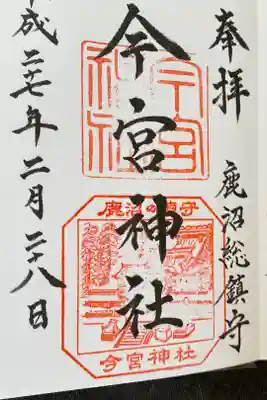 奉拝
鹿沼総鎮守
今宮神社
成二十七年二月二十八日
鹿沼の鎮守
今宮神社